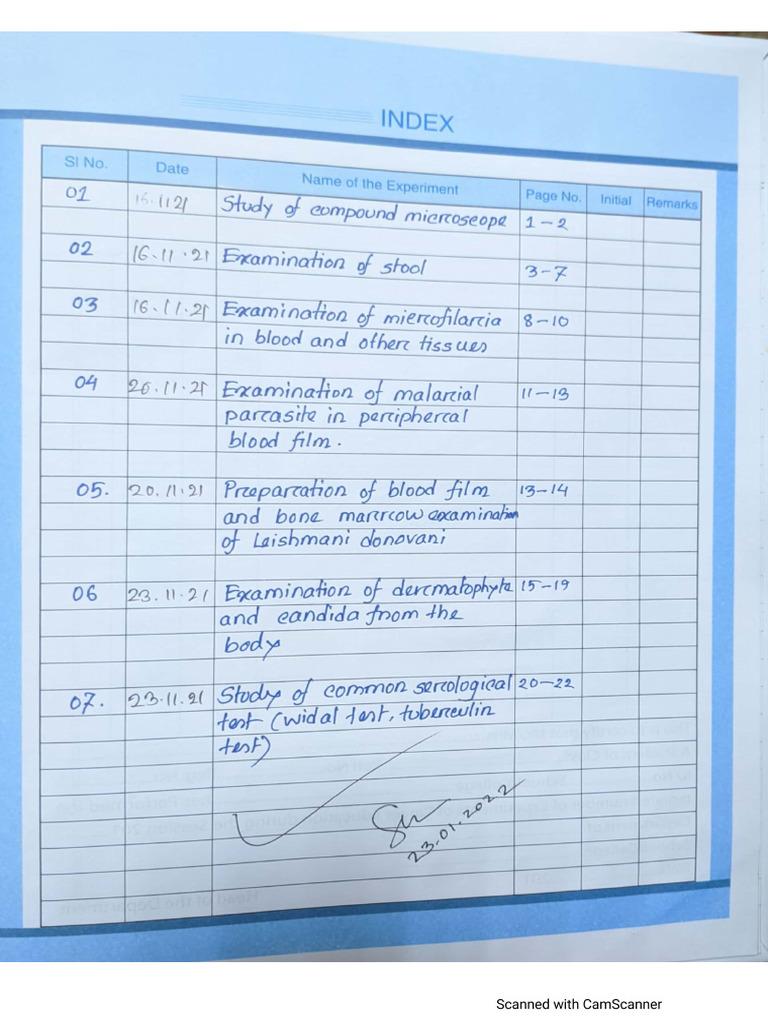 INDEX
Sl No. Date Name of the Experiment Page No. Initial Remarks
01 16.1121 Study of compound microscope 1-2
02 16.11.21 Examination of stool 3-7
03 16.11.21 Examination of microfilaria 8-10
in blood and other tissues
04 20.11.21 Examination of malarial 11-13
parasite in peripheral
blood film.
05. 20.11.21 Preparation of blood film 13-14
and bone marrow examination
of Leishmani donovani
06 23.11.21 Examination of dermatophyte 15-19
and candida from the
body
07. 23.11.21 Study of common serological 20-22
test (widal test, tuberculin
test)
23.01.2022
Scanned with CamScanner